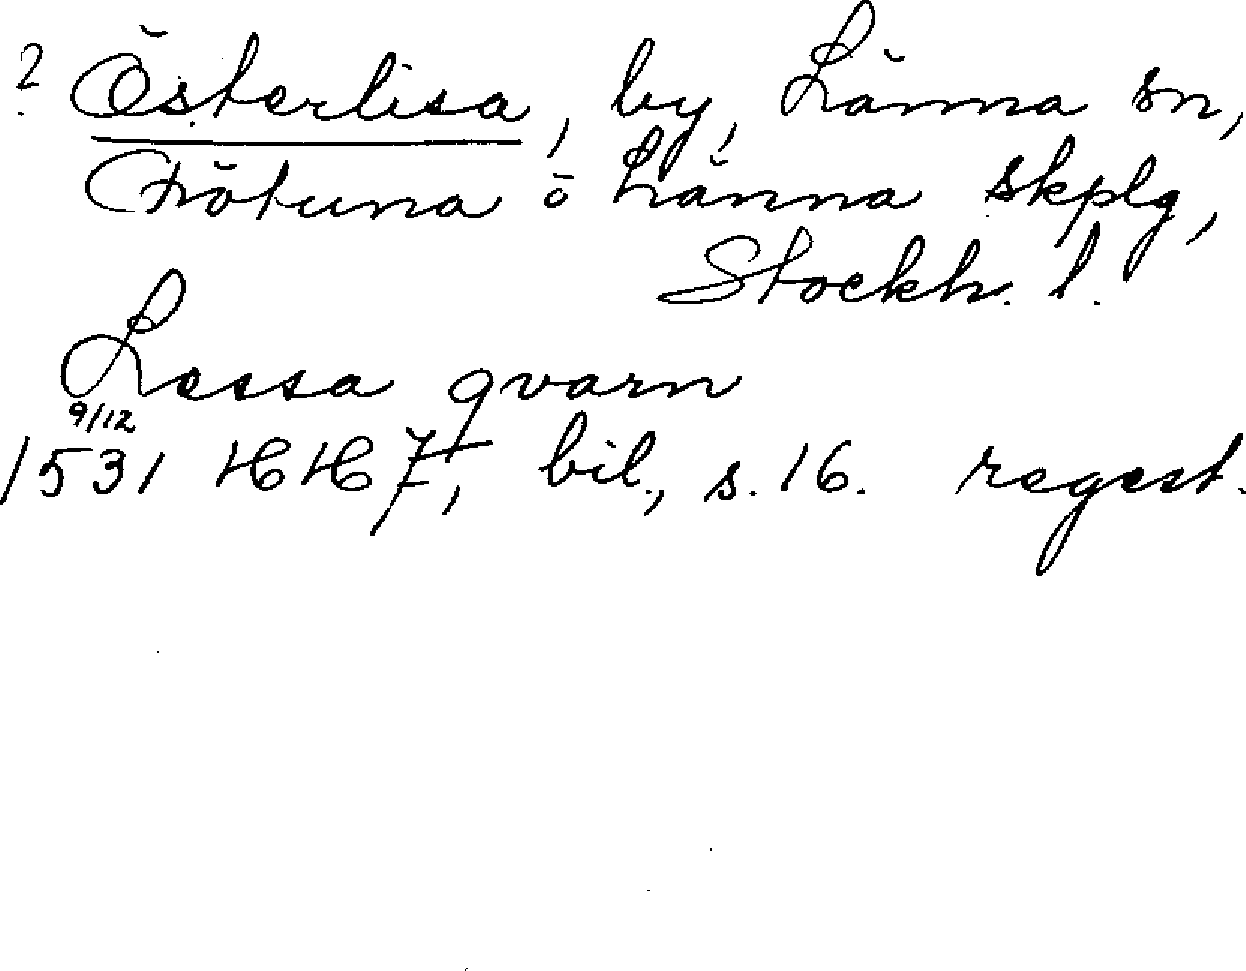 ? Österlisa, by, Länna sn,
Frötuna o Länna skplg,
Stockh. l.
Lessa qvarn
9/12
1531 HH 7, bil., s. 16. regest.